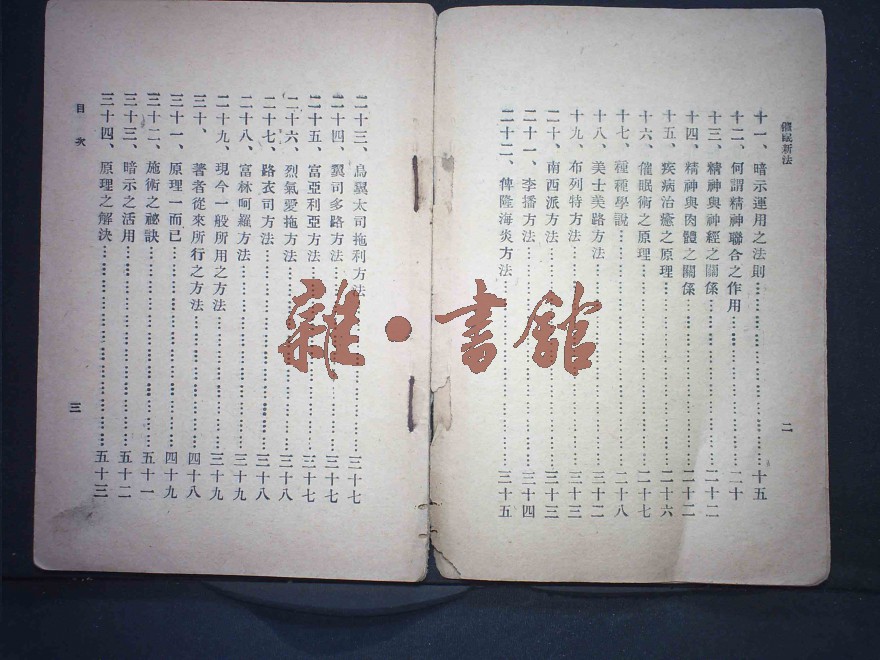 催眠新法
二
十一、暗示運用之法則……十五
十二、何謂精神聯合之作用……二十
十三、精神與神經之關係……二十二
十四、精神與肉體之關係……二十二
十五、疾病治癒之原理……二十六
十六、催眠術之原理……二十七
十七、種種學說……二十八
十八、美士美路方法……三十二
十九、布列特方法……三十三
二十、南西派方法……三十三
二十一、李播方法……三十四
二十二、俾隆海炎方法……三十五
二十三、烏翼太司拖利方法……三十七
二十四、翼司多路方法……三十七
二十五、富亞利亞方法……三十七
二十六、烈氣愛拖方法……三十八
二十七、路衣司方法……三十八
二十八、富林呵羅方法……三十九
二十九、現今一般所用之方法……三十九
三十、著者從來所行之方法……四十八
三十一、原理一而已……四十九
三十二、施術之祕訣……五十一
三十三、暗示之活用……五十二
三十四、原理之解決……五十三
目次
三
雜·書館